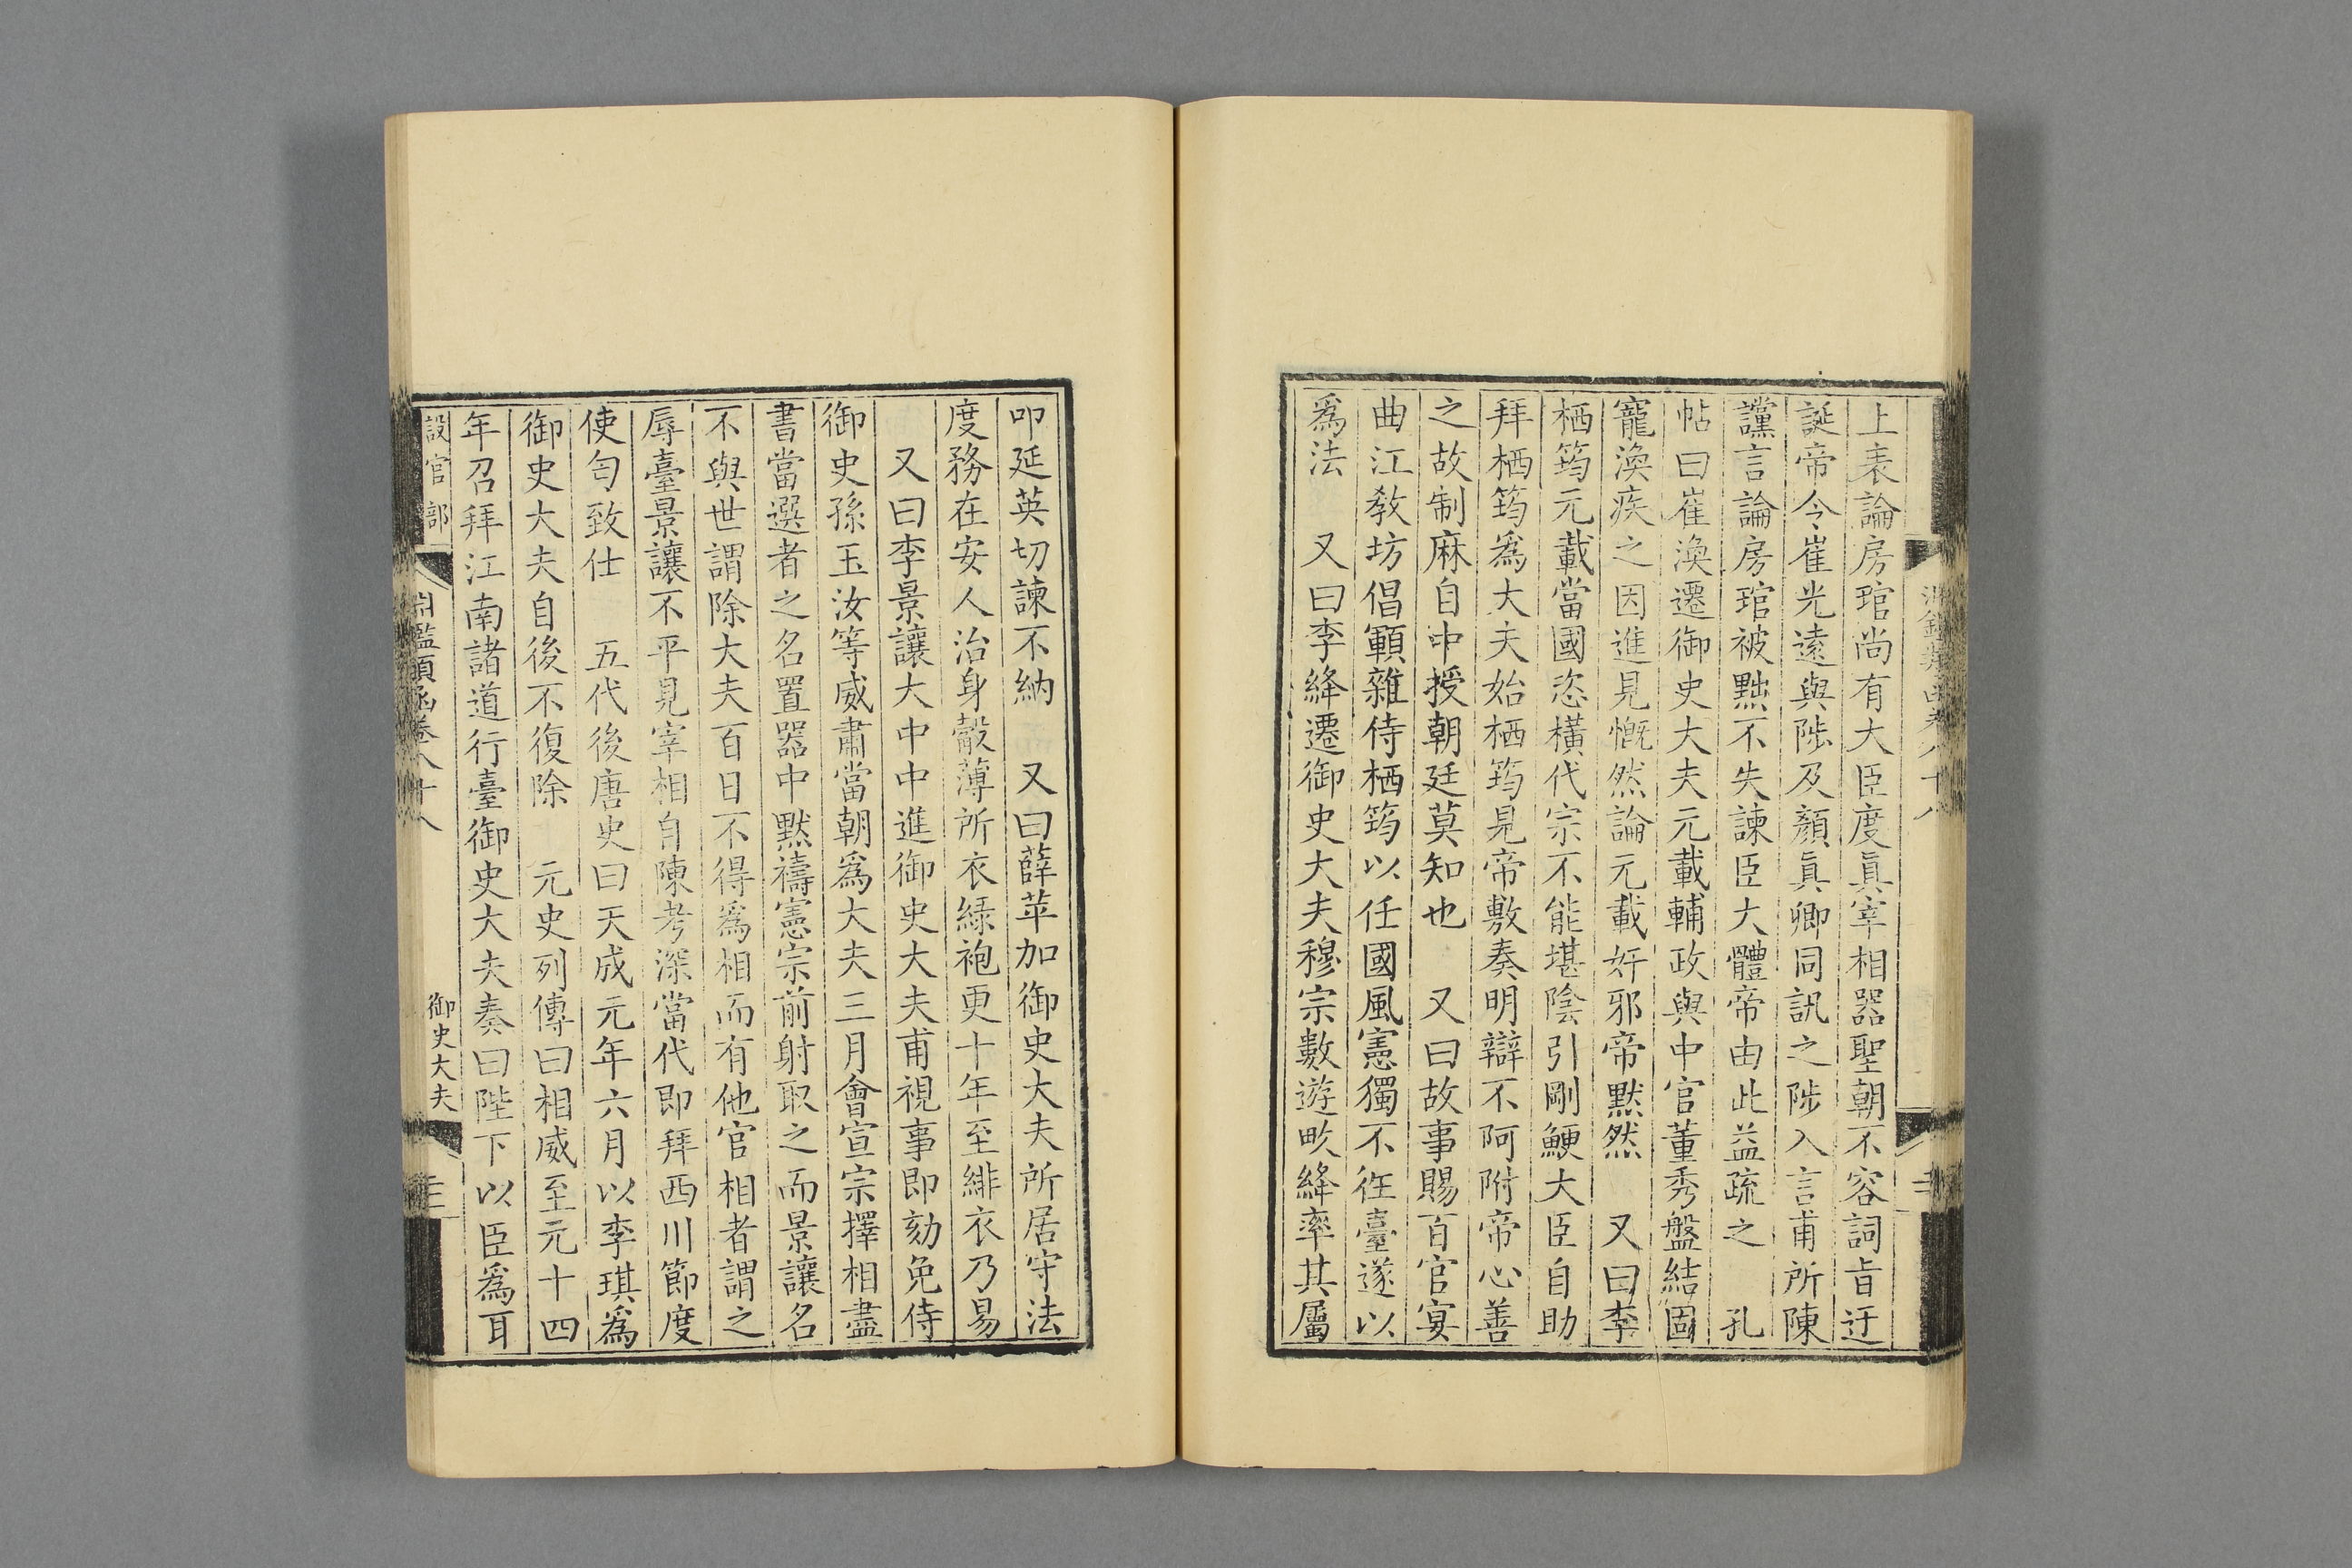 上表論房琯尚有大臣度眞宰相器聖朝不容詞旨迂
誕帝令崔光遠與陟及顏眞卿同訊之陟入言甫所陳
讜言論房琯被黜不失諫臣大體帝由此益疏之　孔
帖曰崔渙遷御史大夫元載輔政與中官董秀盤結固
寵渙疾之因進見慨然論元載奸邪帝黙然　又曰李
栖筠元載當國恣橫代宗不能堪陰引剛鯁大臣自助
拜栖筠爲大夫始栖筠見帝敷奏明辯不阿附帝心善
之故制麻自中授朝廷莫知也　又曰故事賜百官宴
曲江教坊倡顐雜侍栖筠以任國風憲獨不徃臺遂以
爲法　又曰李絳遷御史大夫穆宗數遊畋絳率其屬
叩延英切諫不納　又曰薛苹加御史大夫所居守法
度務在安人治身觳薄所衣綠袍更十年至緋衣乃易
又曰李景讓大中中進御史大夫甫視事即劾免侍
御史孫玉汝等威肅當朝爲大夫三月會宣宗擇相盡
書當選者之名置器中黙禱憲宗前射取之而景讓名
不與世謂除大夫百日不得爲相而有他官相者謂之
辱臺景讓不平見宰相自陳考深當代即拜西川節度
使匄致仕　五代後唐史曰天成元年六月以李琪爲
御史大夫自後不復除　元史列傳曰相威至元十四
年召拜江南諸道行臺御史大夫奏曰陛下以臣爲耳
設官部　淵鑑類函卷八十八　御史大夫